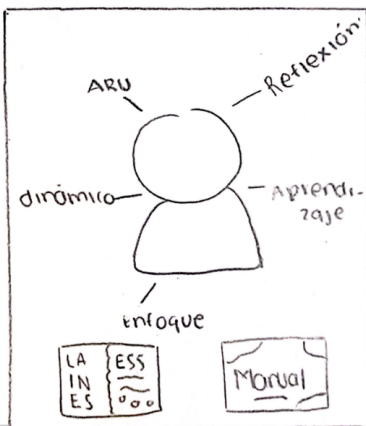 ARU
Reflexión
dinámico
Aprendi-
zaje
Enfoque
LA
IN
ES
ESS
Manual